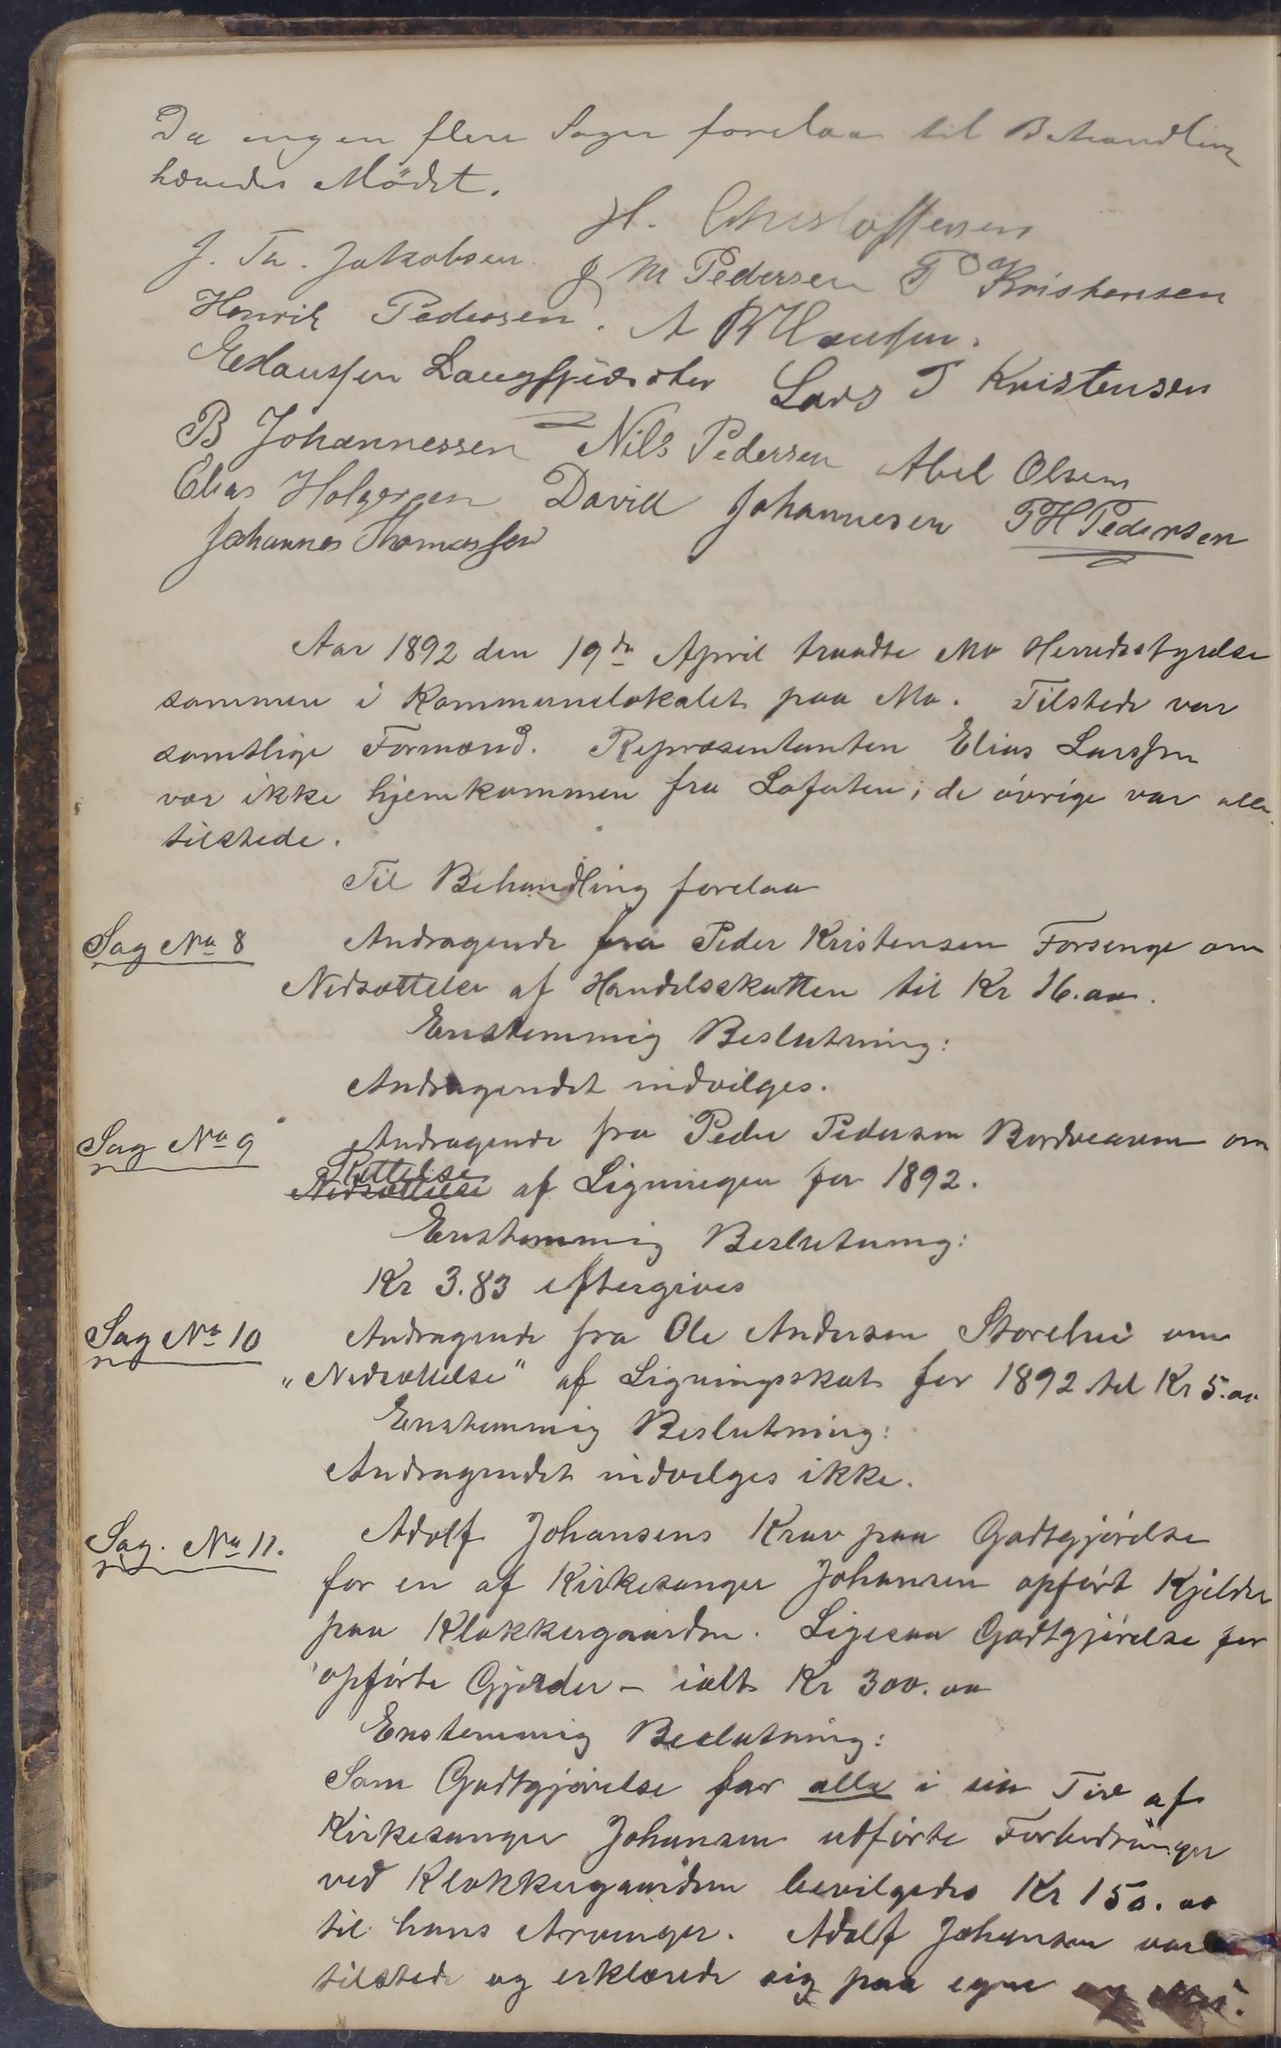 Da ingen flere Sager forelaa til Behandling
hævedes Mödet.
H. Christoffersen
J. Th. Jakobsen J M Pedersen P Kristensen
Henrik Pedersen. A B Hansen.
E Hanssen Langfjeldeter Lars T Kristensen
B Johannessen Nils Pedersen Abel Olsen
Elias Holgersen David Johannesen P H Pedersen
Johannes Thomassen
Aar 1892 den 19de April traadte Mo Herredsstyrelse
sammen i Kommunelokalet paa Mo. Tilstede var
samtlige Formænd. Repræsentanten Elias Larssen
var ikke hjemkommen fra Lofoten; de övrige var alle
tilstede.
Til Behandling forelaa
Sag No 8 Andragende fra Peder Kristensen Forsenge om
Nedsættelse af Handelsskatten til Kr 16.00.
Enstemmig Beslutning:
Andragendet indvilges.
Sag No 9 Andragende fra Peder Pedersen om
Rettelse
Nedsættelse af Ligningen for 1892.
Enstemmig Beslutning:
Kr 3.83 eftergives
Sag No 10 Andragende fra Ole Andersen Storelui om
"Nedsættelse" af Ligningsskat for 1892 til Kr 5.00
Enstemmig Beslutning:
Andragendet indvilges ikke.
Sag. No 11. Adolf Johansens Krav paa Godtgjörelse
for en af Kirkesanger Johansen opfört Kjelder
paa Klokkergaarden. Ligesaa Godtgjörelse for
opförte Gjærder – ialt Kr 300.00
Enstemmig Beslutning:
Som Godtgjörelse for alle i sin Tid af
Kirkesanger Johansen udförte Forbedringer
ved Klokkergaarden bevilgedes Kr 150.00
til hans Arvinger. Adolf Johansen var
tilstede og erklærede sig paa egne